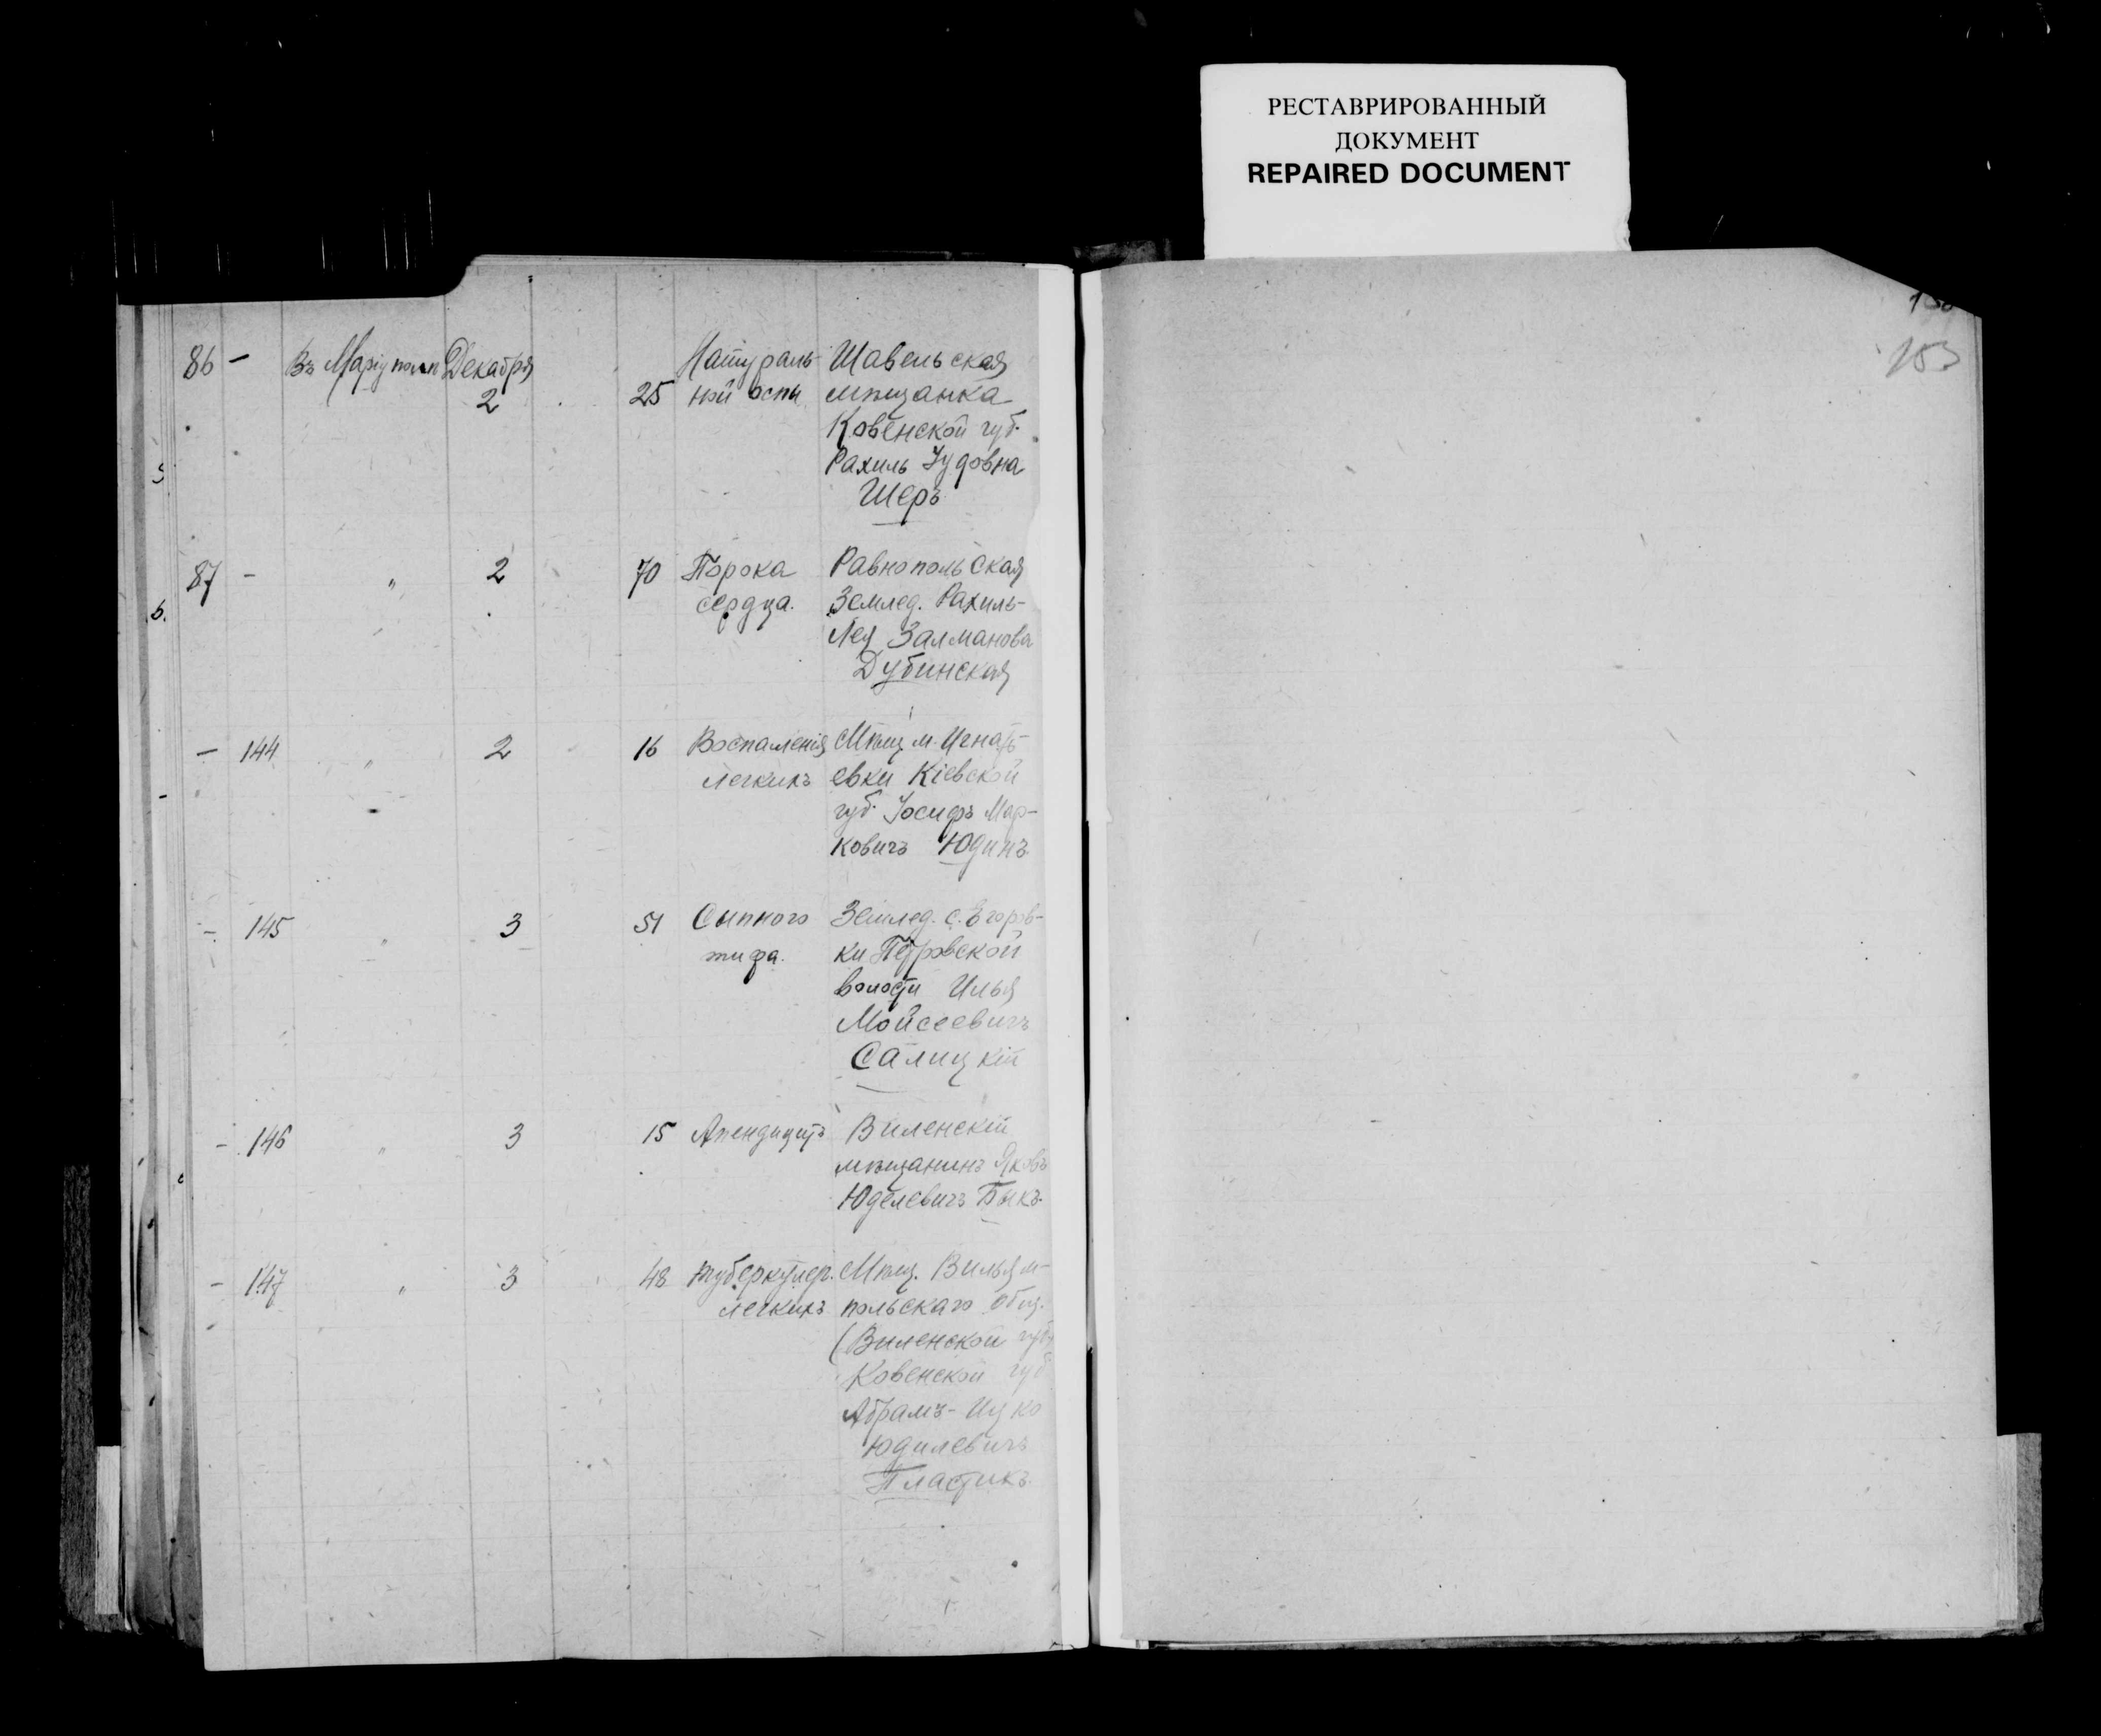 РЕСТАВРИРОВАННЫЙ
ДОКУМЕНТ
REPAIRED DOCUMENT
153
86 — Въ Маріуполѣ Декабря 2 25 Натураль-
ной оспы
Шавельская
мѣщанка
Ковенской губ.
Рахиль Іудовна
Шеръ
87 — " 2 70 Порока
сердца.
Равнопольская
Землед. Рахиль-
Лея Залманова
Дубинская
— 144 " 2 16 Воспаленія
легкихъ
Мѣщ. м. Игнать-
евки Кіевской
губ. Іосифъ Мар-
ковичъ Юдинъ
— 145 " 3 51 Сыпного
тифа.
Землед. с. Егоров-
ки Петровской
волости Илья
Мойсеевичъ
Салицкій
— 146 " 3 15 Апендицитъ
Виленскій
мѣщанинъ Яковъ
Юделевичъ Быкъ.
— 147 " 3 48 Туберкулер.
легкихъ
Мѣщ. Вильям-
польскаго общ.
(Виленской губ)
Ковенской губ
Абрамъ-Ицко
Юдилевичъ
Пластикъ.